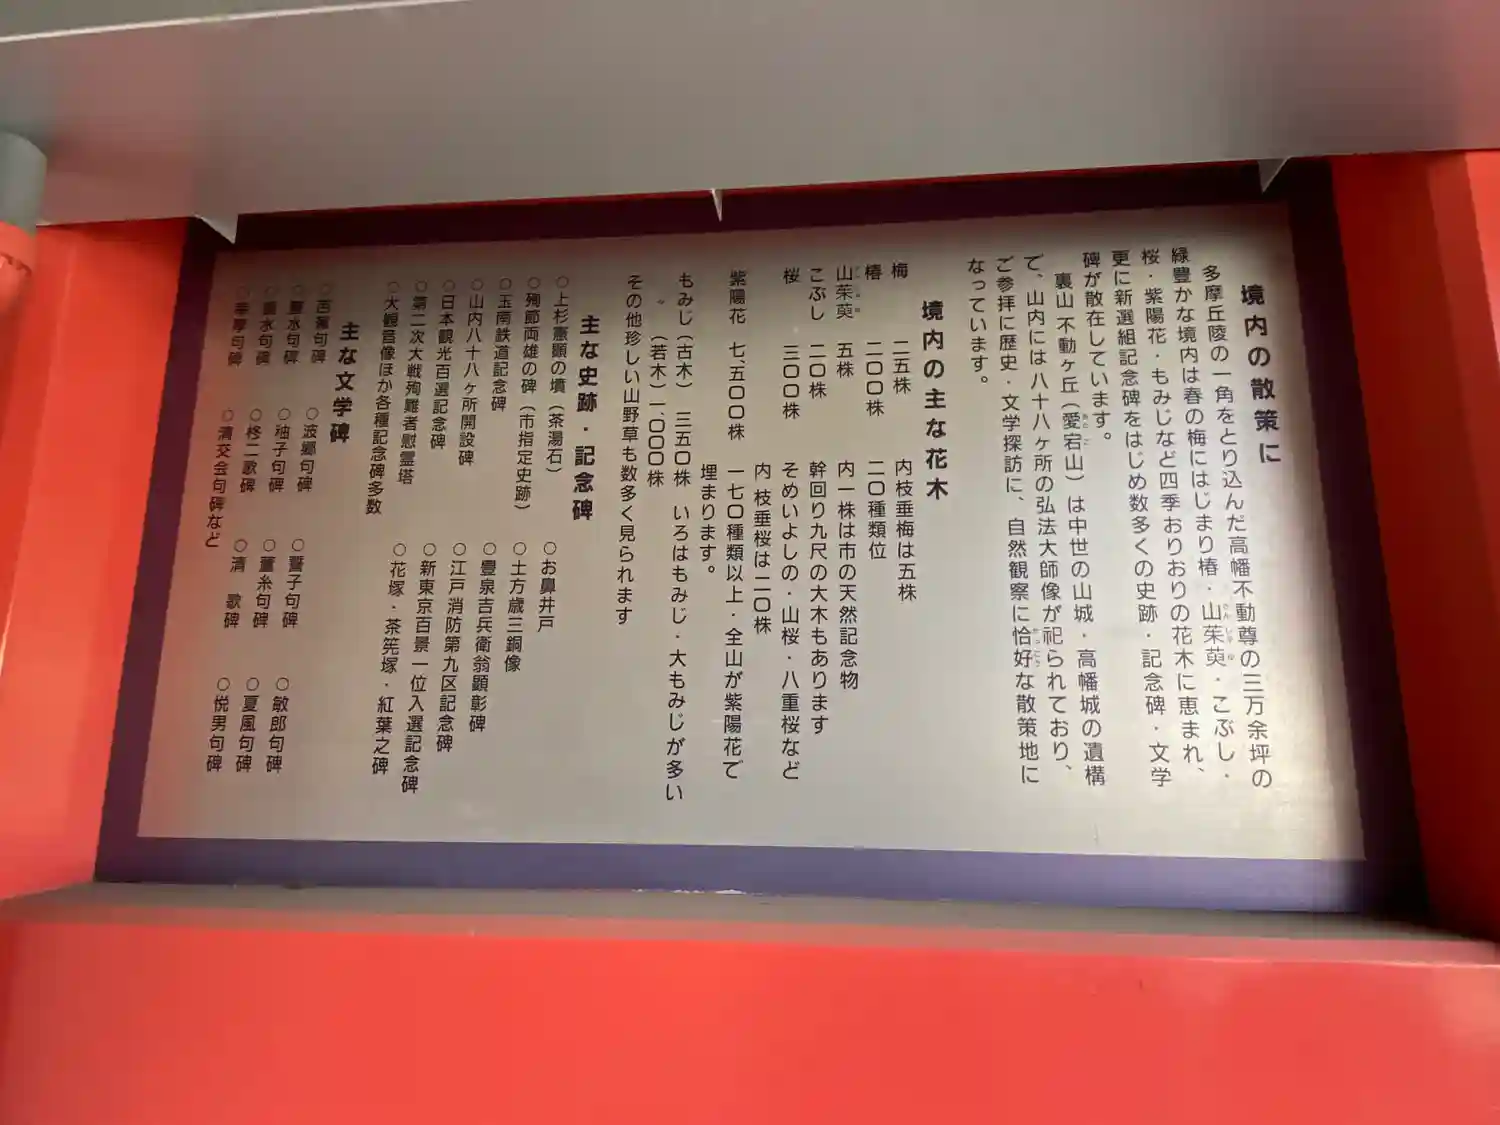 境内の散策に
多摩丘陵の一角をとり込んだ高幡不動尊の三万余坪の
緑豊かな境内は春の梅にはじまり椿・山茱萸・こぶし・
桜・紫陽花・もみじなど四季おりおりの花木に恵まれ、
更に新選組記念碑をはじめ数多くの史跡・記念碑・文学
碑が散在しています。
裏山不動ヶ丘（愛宕山）は中世の山城・高幡城の遺構
で、山内には八十八ヶ所の弘法大師像が祀られており、
ご参拝に歴史・文学探訪に、自然観察に恰好な散策地に
なっています。
境内の主な花木
梅 二五株 内枝垂梅は五株
椿 二〇〇株 二〇種類位
山茱萸 五株 内一株は市の天然記念物
こぶし 二〇株 幹回り九尺の大木もあります
桜 三〇〇株 そめいよしの・山桜・八重桜など
内 枝垂桜は二〇株
紫陽花 七、五〇〇株 一七〇種類以上・全山が紫陽花で
埋まります。
もみじ（古木） 三五〇株 いろはもみじ・大もみじが多い
〃（若木）一、〇〇〇株
その他珍しい山野草も数多く見られます
主な史跡・記念碑
○上杉憲顕の墳（茶湯石） ○お鼻井戸
○殉節両雄の碑（市指定史跡） ○土方歳三銅像
○玉南鉄道記念碑 ○豊泉吉兵衛翁顕彰碑
○山内八十八ヶ所開設碑 ○江戸消防第九区記念碑
○日本観光百選記念碑 ○新東京百景一位入選記念碑
○第二次大戦殉難者慰霊塔 ○花塚・茶筅塚・紅葉之碑
○大観音像ほか各種記念碑多数
主な文学碑
○芭蕉句碑 ○波郷句碑 ○誓子句碑 ○敏郎句碑
水句碑 ○秞子句碑 ○菫糸句碑 ○夏風句碑
水句碑 ○柊二歌碑 ○清 歌碑 ○悦男句碑
句碑 ○清交会句碑など